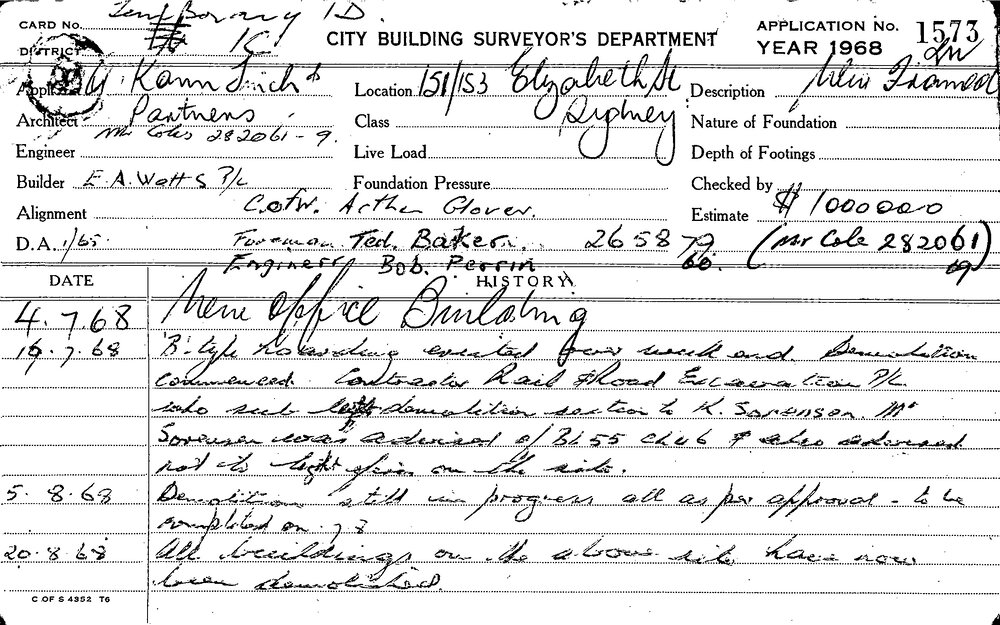 CARD No. Temporary 1D.
DISTRICT 1C
CITY BUILDING SURVEYOR'S DEPARTMENT
APPLICATION No. 1573
YEAR 1968
Kann Finch &
Location 151/153 Elizabeth St
Description New Framed
Architect Partners
Class Sydney
Nature of Foundation
Mr Coles 282061-9.
Engineer
Live Load
Depth of Footings
Builder E.A. Watts P/L
Foundation Pressure
Checked by
Alignment C.ofW. Arthur Glover.
Estimate $ 1000000
D.A. 1/65 Foreman Ted. Baker. 2658 79 (Mr Cole 282061)
Engineer Bob. Perrin 60. 69
DATE HISTORY
4.7.68 New Office Building
16.7.68 'B' type hoarding erected over weekend Demolition
commenced. Contractor Rail & Road Excavation P/L
who sub demolition section to K. Sorensen. Mr
Sorensen was advised of B1.55 ch 6 & also advised
not to light fires on the site.
5.8.68 Demolition still in progress all as per approval - to be
completed on
20.8.68 All buildings on the above site have now
been demolished.
C OF S 4352 T6